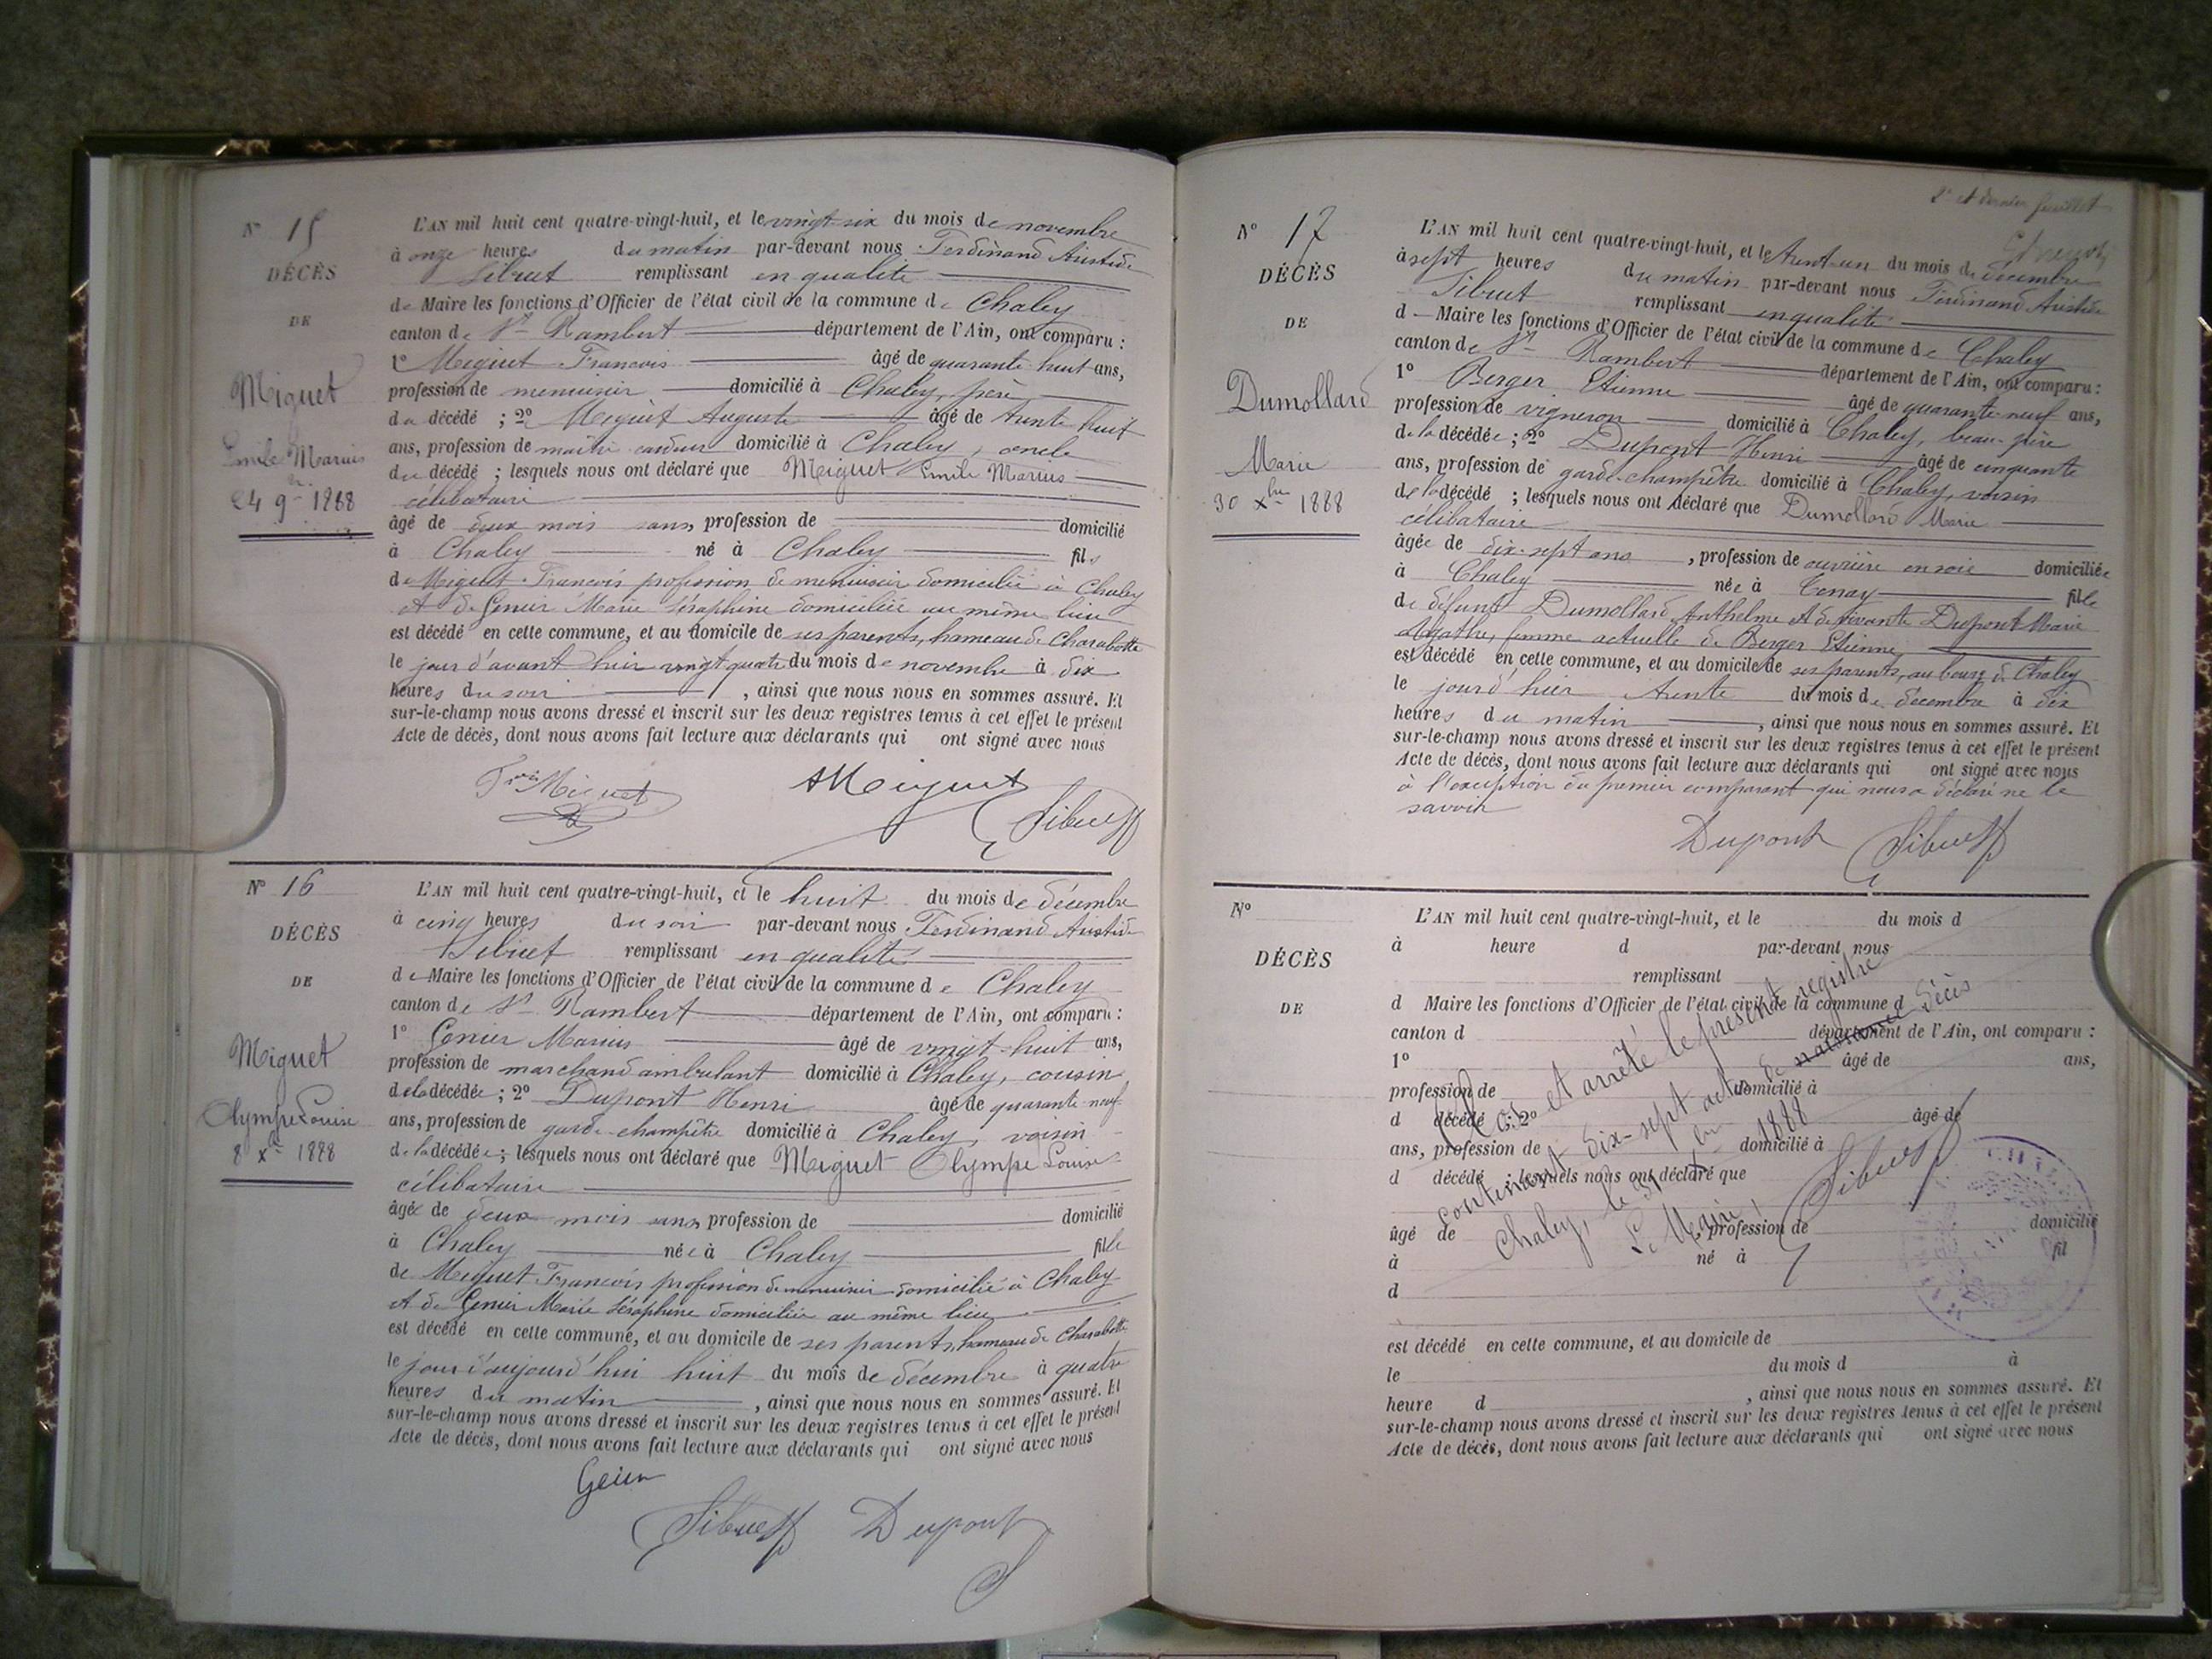 N° 15
DÉCÈS
DE
Miguet
Emile Marius
24 9bre 1888
L'AN mil huit cent quatre-vingt-huit, et le vingt-six du mois de novembre
à onze heures du matin par-devant nous Ferdinand Aristide
Sibuet remplissant en qualité
de Maire les fonctions d'Officier de l'état civil de la commune de Chaley
canton de St Rambert département de l'Ain, ont comparu :
1° Miguet François âgé de quarante huit ans,
profession de menuisier domicilié à Chaley, père
du décédé ; 2° Miguet Auguste âgé de trente huit
ans, profession de maître cardeur domicilié à Chaley, oncle
du décédé ; lesquels nous ont déclaré que Miguet Emile Marius
célibataire
âgé de deux mois sans profession de domicilié
à Chaley né à Chaley fils
de Miguet François profession de menuisier domicilié à Chaley
et de Genier Marie Séraphine domiciliée au même lieu
est décédé en cette commune, et au domicile de ses parents, hameau de Charabotte
le jour d'avant hier vingt quatre du mois de novembre à dix
heures du soir , ainsi que nous nous en sommes assuré. Et
sur-le-champ nous avons dressé et inscrit sur les deux registres tenus à cet effet le présent
Acte de décès, dont nous avons fait lecture aux déclarants qui ont signé avec nous
Fcois Miguet AMiguet Sibuet
N° 16
DÉCÈS
DE
Miguet
Olympe Louise
8 Xbre 1888
L'AN mil huit cent quatre-vingt-huit, et le huit du mois de décembre
à cinq heures du soir par-devant nous Ferdinand Aristide
Sibuet remplissant en qualité
de Maire les fonctions d'Officier de l'état civil de la commune de Chaley
canton de St Rambert département de l'Ain, ont comparu :
1° Genier Marius âgé de vingt-huit ans,
profession de marchand ambulant domicilié à Chaley, cousin
de la décédée ; 2° Dupont Henri âgé de quarante-neuf
ans, profession de garde-champêtre domicilié à Chaley, voisin
de la décédée ; lesquels nous ont déclaré que Miguet Olympe Louise
célibataire
âgée de deux mois sans profession de domicilié
à Chaley née à Chaley fille
de Miguet François profession de menuisier domicilié à Chaley
et de Genier Marie Séraphine domiciliée au même lieu
est décédé en cette commune, et au domicile de ses parents, hameau de Charabotte
le jour d'aujourd'hui huit du mois de décembre à quatre
heures du matin , ainsi que nous nous en sommes assuré. Et
sur-le-champ nous avons dressé et inscrit sur les deux registres tenus à cet effet le présent
Acte de décès, dont nous avons fait lecture aux déclarants qui ont signé avec nous
Sibuet Dupont
et dernier feuillet
N° 17
DÉCÈS
DE
Dumollard
Marie
30 Xbre 1888
L'AN mil huit cent quatre-vingt-huit, et le trente-un du mois de décembre
à sept heures du matin par-devant nous Ferdinand Aristide
Sibuet remplissant en qualité
d Maire les fonctions d'Officier de l'état civil de la commune de Chaley
canton de St Rambert département de l'Ain, ont comparu :
1° Berger Etienne âgé de quarante-neuf ans,
profession de vigneron domicilié à Chaley, beau-père
de la décédée ; 2° Dupont Henri âgé de cinquante
ans, profession de garde-champêtre domicilié à Chaley, voisin
de la décédé ; lesquels nous ont déclaré que Dumollard Marie
célibataire
âgée de dix-sept ans , profession de ouvrière en soie domiciliée
à Chaley née à Tenay fille
de défunt Dumollard Anthelme et de vivante Dupont Marie
Agathe, femme actuelle de Berger Etienne
est décédé en cette commune, et au domicile de ses parents, au bourg de Chaley
le jour d'hier trente du mois de décembre à dix
heures du matin , ainsi que nous nous en sommes assuré. Et
sur-le-champ nous avons dressé et inscrit sur les deux registres tenus à cet effet le présent
Acte de décès, dont nous avons fait lecture aux déclarants qui ont signé avec nous
à l'exception du premier comparant qui nous a déclaré ne le
savoir
Dupont Sibuet
N°
DÉCÈS
DE
L'AN mil huit cent quatre-vingt-huit, et le du mois d
à heure d par-devant nous
remplissant
d Maire les fonctions d'Officier de l'état civil de la commune d
canton d département de l'Ain, ont comparu :
1° âgé de ans,
profession de domicilié à
d décédé ; 2° âgé de
ans, profession de domicilié à
d décédé ; lesquels nous ont déclaré que
âgé de profession de domicilié
à né à fil
d
est décédé en cette commune, et au domicile de
le du mois d à
heure d , ainsi que nous nous en sommes assuré. Et
sur-le-champ nous avons dressé et inscrit sur les deux registres tenus à cet effet le présent
Acte de décès, dont nous avons fait lecture aux déclarants qui ont signé avec nous
Clos et arrêté le présent registre
contenant dix-sept actes de naissance décès
Chaley, le 31 Xbre 1888
Le Maire
Sibuet